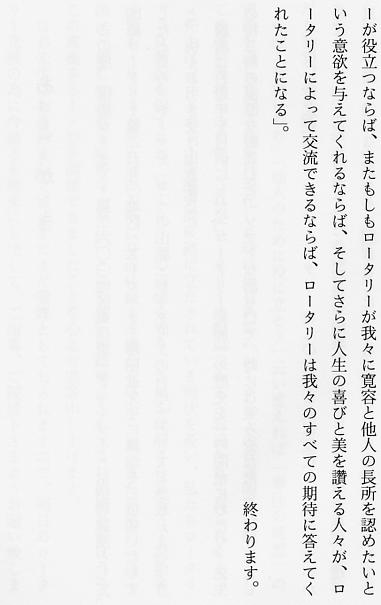 ーが役立つならば、またもしもロータリーが我々に寛容と他人の長所を認めたいと
いう意欲を与えてくれるならば、そしてさらに人生の喜びと美を讃える人々が、ロ
ータリーによって交流できるならば、ロータリーは我々のすべての期待に答えてく
れたことになる」。
終わります。